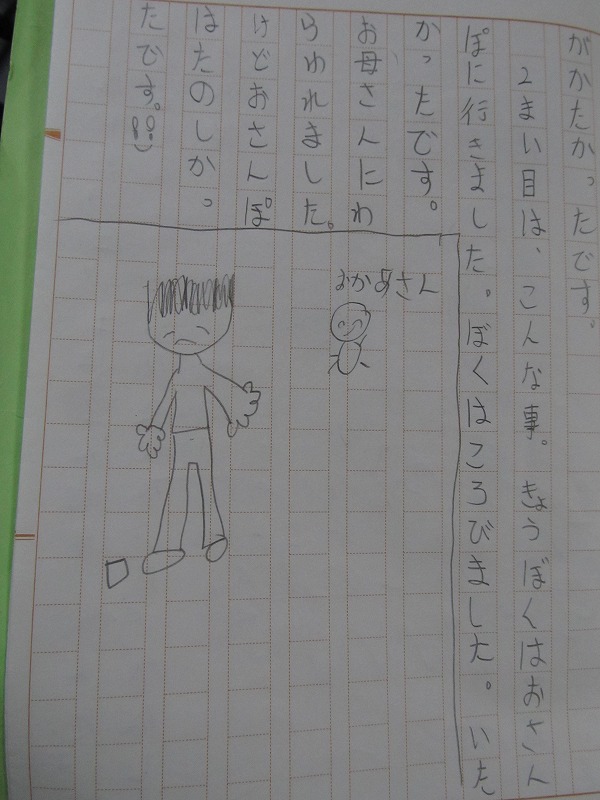 がかたかったです。
2まい目は、こんな事。きょうぼくはおさん
ぽに行きました。ぼくはころびました。いた
かったです。
お母さんにわ
らわれました。
けどおさんぽ
はたのしかっ
たです。!!
おかあさん